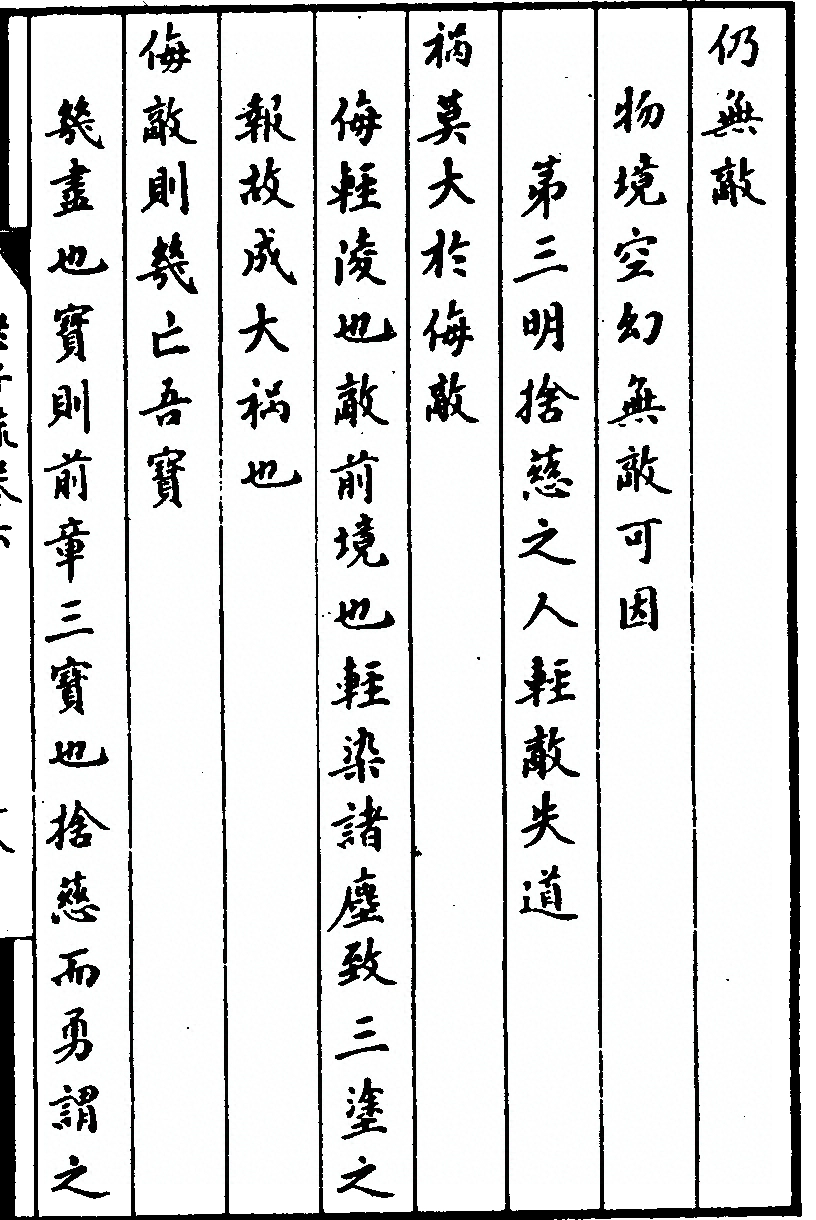 仍無敵
物境空幻無敵可因
第三明捨慈之人輕敵失道
禍莫大於侮敵
侮輕陵也敵前境也輕染諸塵致三塗之
報故成大禍也
侮敵則幾亡吾寶
幾盡也寶則前章三寶也捨慈而勇謂之